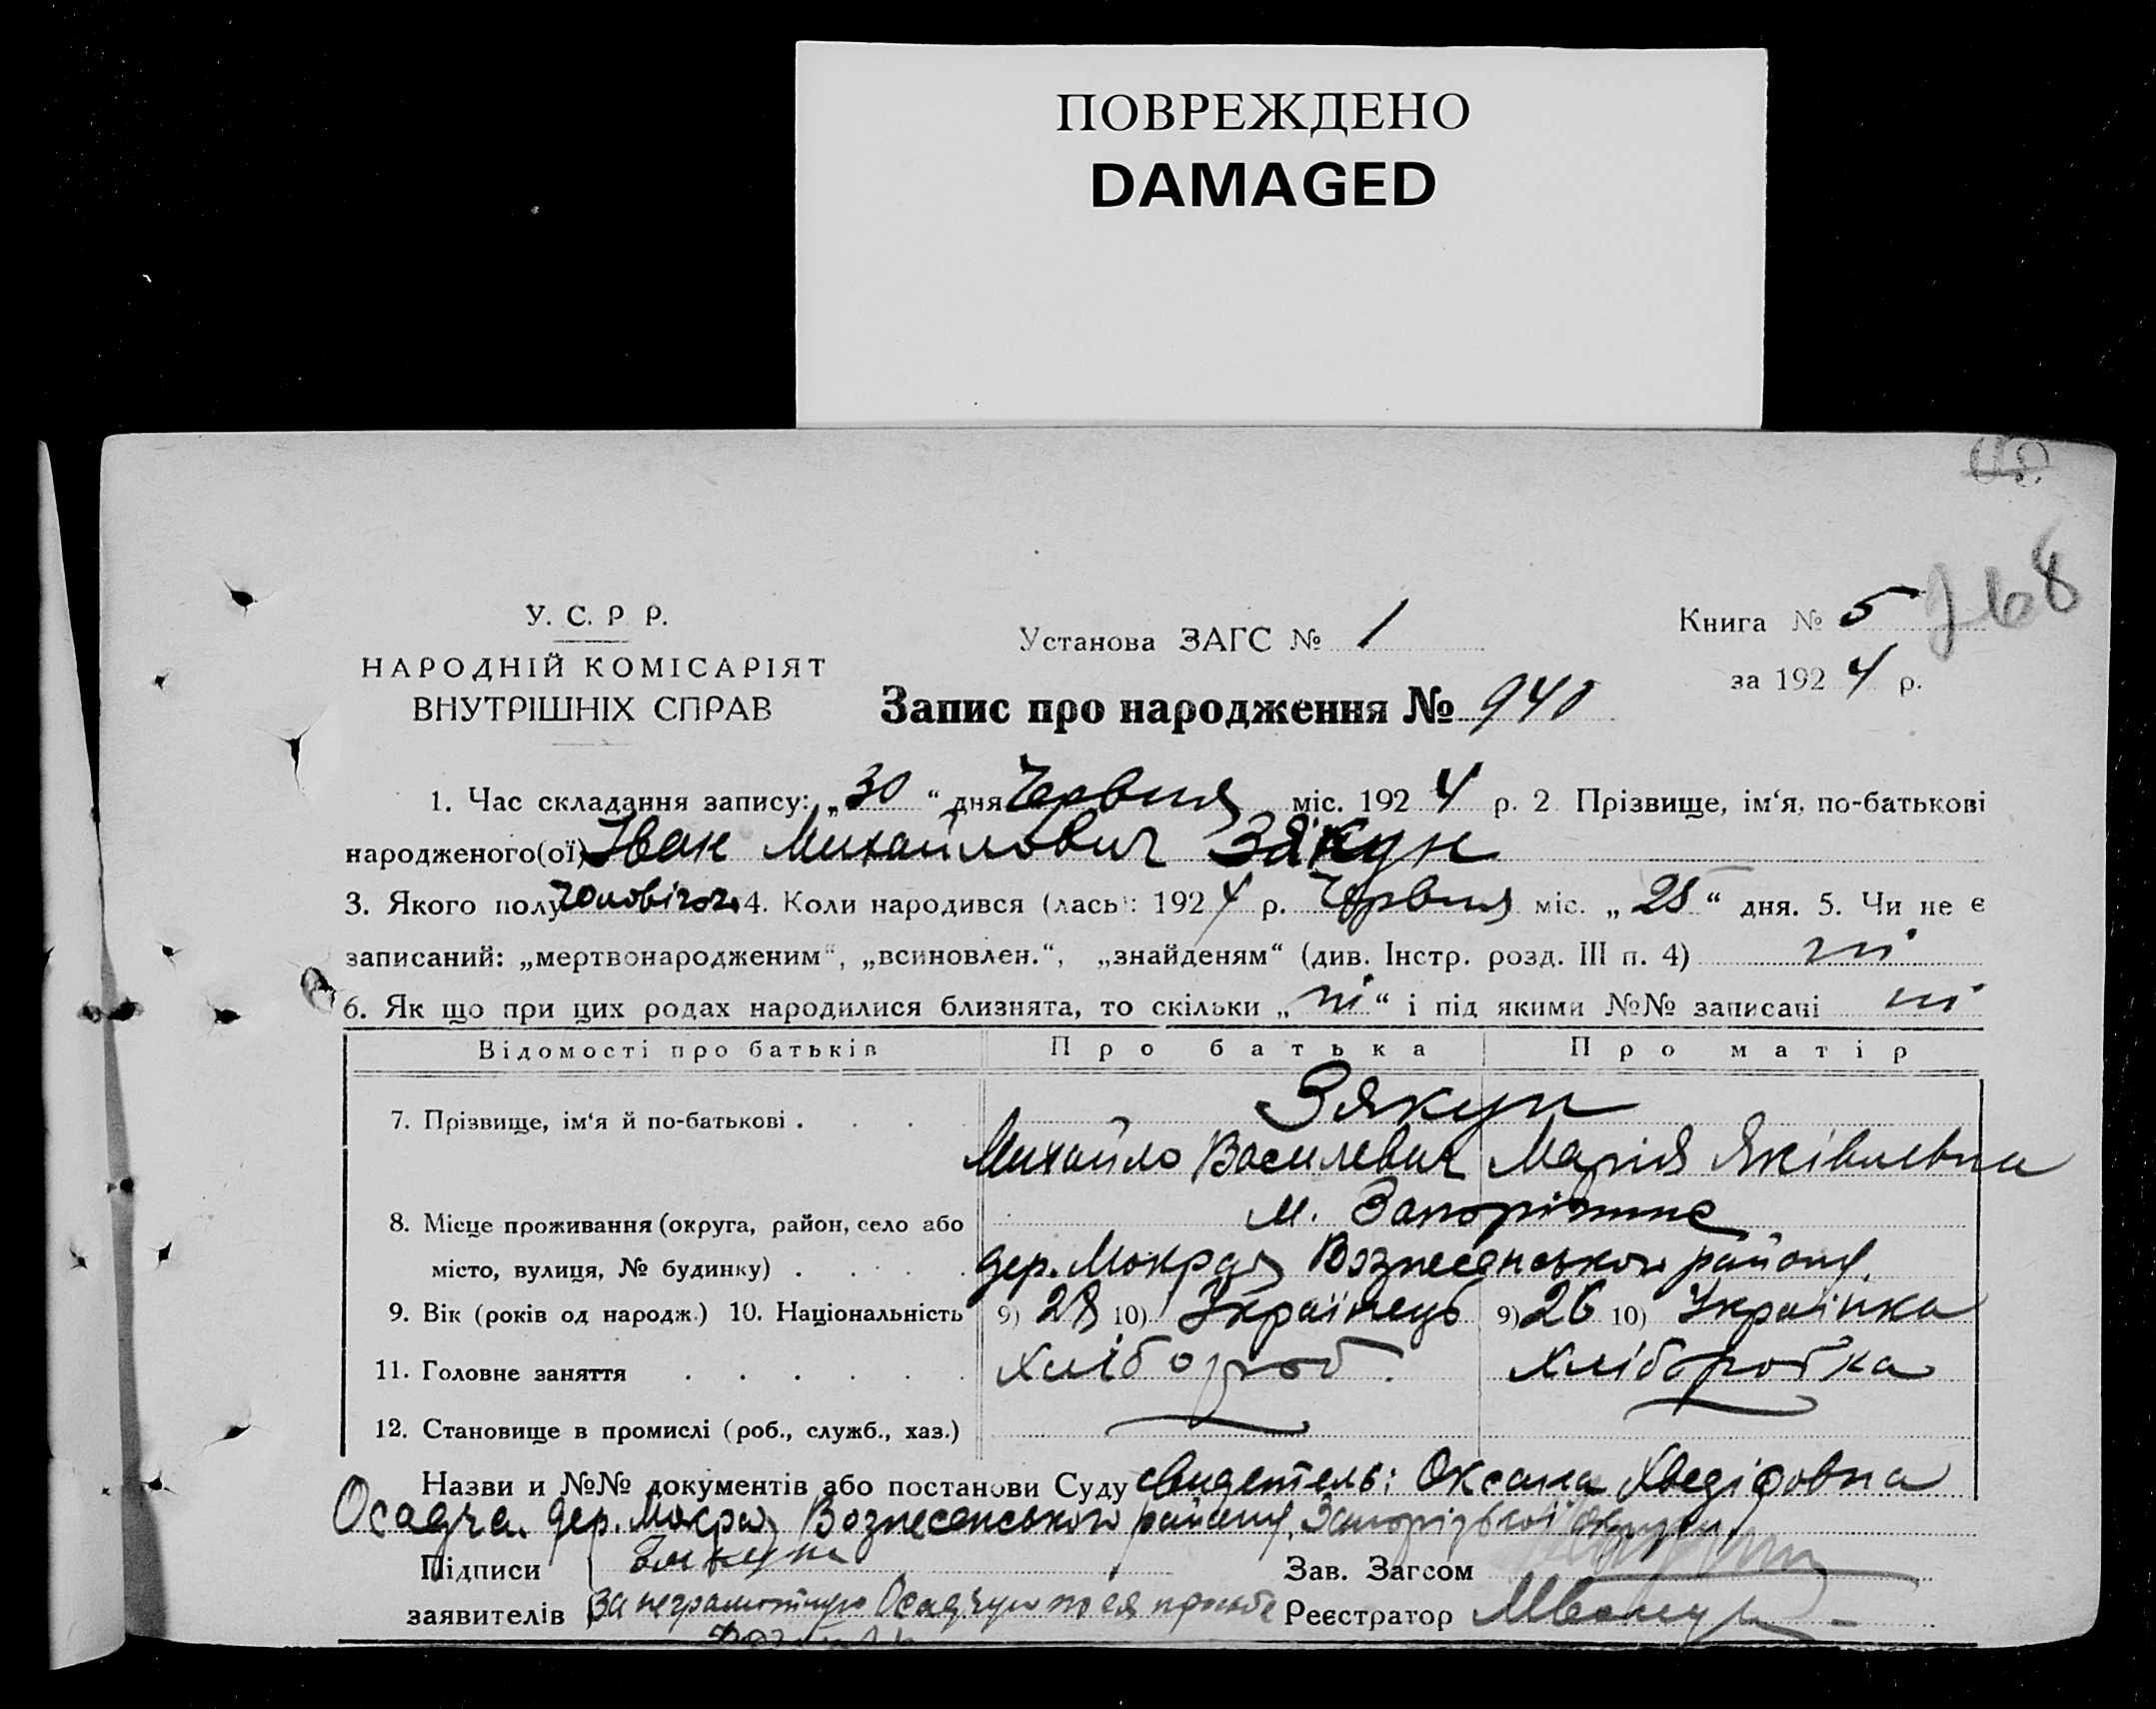 ПОВРЕЖДЕНО
DAMAGED
268
У. С. Р. Р.
НАРОДНІЙ КОМІСАРІЯТ
ВНУТРІШНІХ СПРАВ
Установа ЗАГС № 1
Книга № 5
за 1924 р.
Запис про народження № 940
1. Час складання запису: „30“ дня Червня міс. 1924 р. 2 Прізвище, ім‘я, по-батькові
народженого(ої) Іван Михайлович Зякун
3. Якого полу 4. Коли народився (лась): 1924 р. Червня міс. „25“ дня. 5. Чи не є
записаний: „мертвонародженим“, „всиновлен.“, „знайденям“ (див. Інстр. розд. III п. 4) ні
6. Як що при цих родах народилися близнята, то скільки „ні“ і під якими №№ записані ні
Відомості про батьків Про батька Про матір
Зякун
7. Прізвище, ім‘я й по-батькові .
Михайло Василевич Марія Яківлевна
8. Місце проживання (округа, район, село або м. Запоріжжє
місто, вулиця, № будинку) . дер. Мокрая Вознесенського району.
9. Вік (років од народж.) 10. Національність 9) 28 10) Українець 9) 26 10) Українка
11. Головне заняття Хлібороб. Хліборобка
12. Становище в промислі (роб., служб., хаз.)
Назви и №№ документів або постанови Суду свидетель: Оксана
Осадча. дер. Мокрая Вознесенського району, Запорізької округи.
Підписи Зякун Зав. Загсом
заявителів За неграмотную Осадчую по ея прозьбе Реєстратор